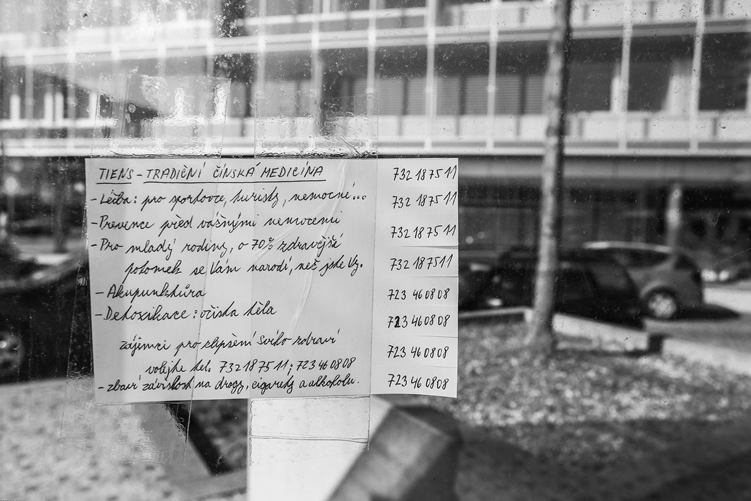 TIENS - TRADIČNÍ ČÍNSKÁ MEDICÍNA
- Léčba: pro sportovce, turisty, nemocné...
- Prevence před vážnými nemocemi
- Pro mladý rodiny, o 70% zdravější
potomek se Vám narodí, než jste Vy.
- Akupunktůra
- Detoxikace: očista těla
zájemci pro zlepšení svého zdraví
volejte tel. 732187511; 723460808
- zbaví závislosti na drogy, cigarety a alkoholu.
732187511
732187511
732187511
732187511
723460808
723460808
723460808
723460808